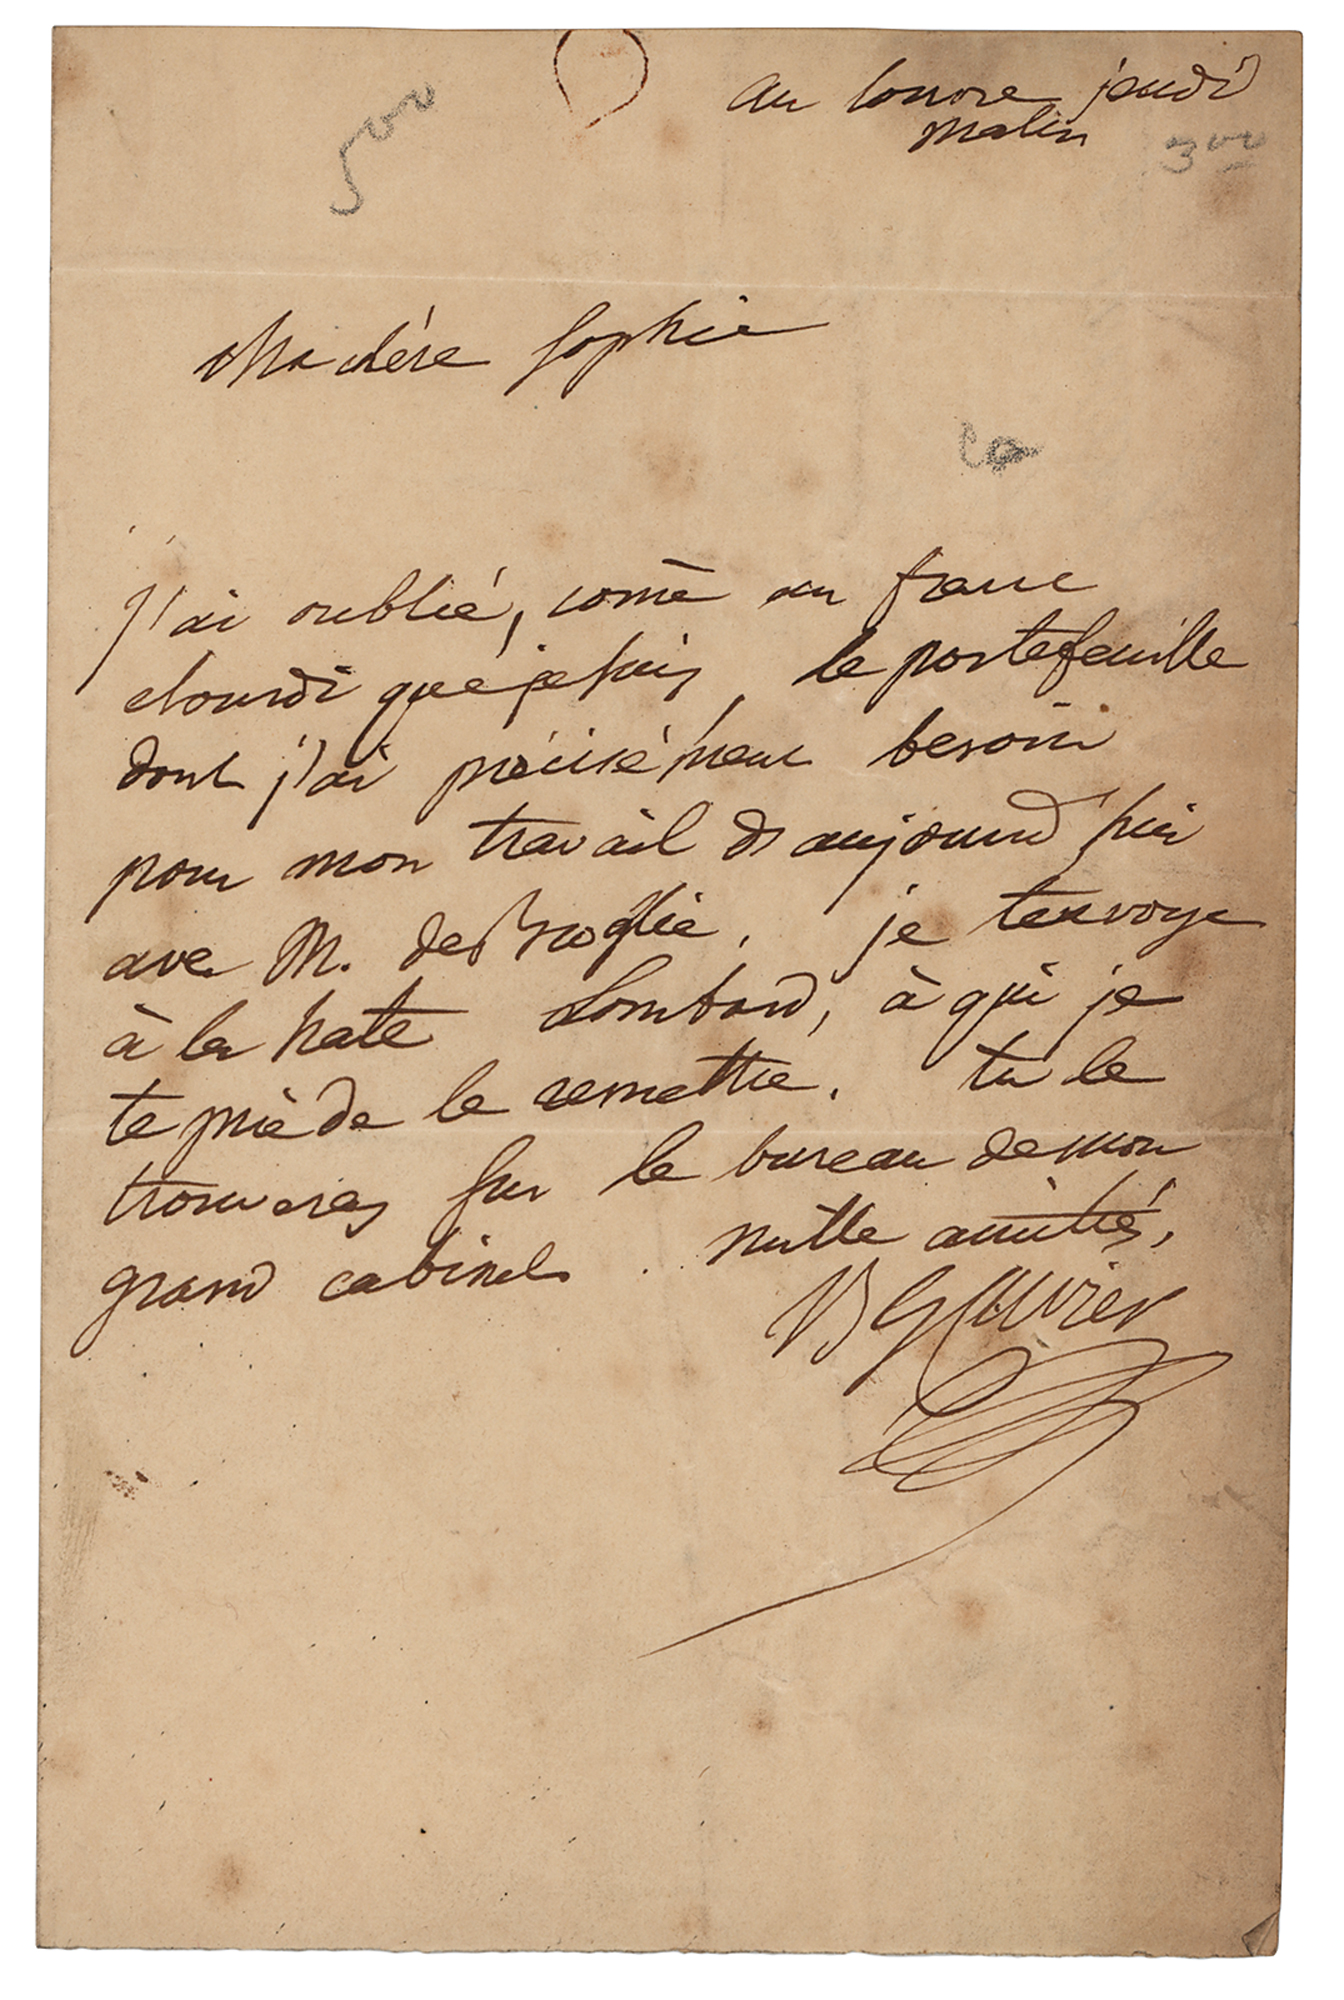 au louvre jeudi
matin
500
300
Ma chére Sophie
j'ai oublié, comē un franc
etourdi que je suis, le portefeuille
dont j'ai précisément besoin
pour mon travail d'aujourd'hui
avec M. de Broglie. je t'envoye
à la hate Lombard, à qui je
te prie de le remettre. tu le
trouveras sur le bureau de mon
grand cabinet. mille amitiés,
B G Cuvier